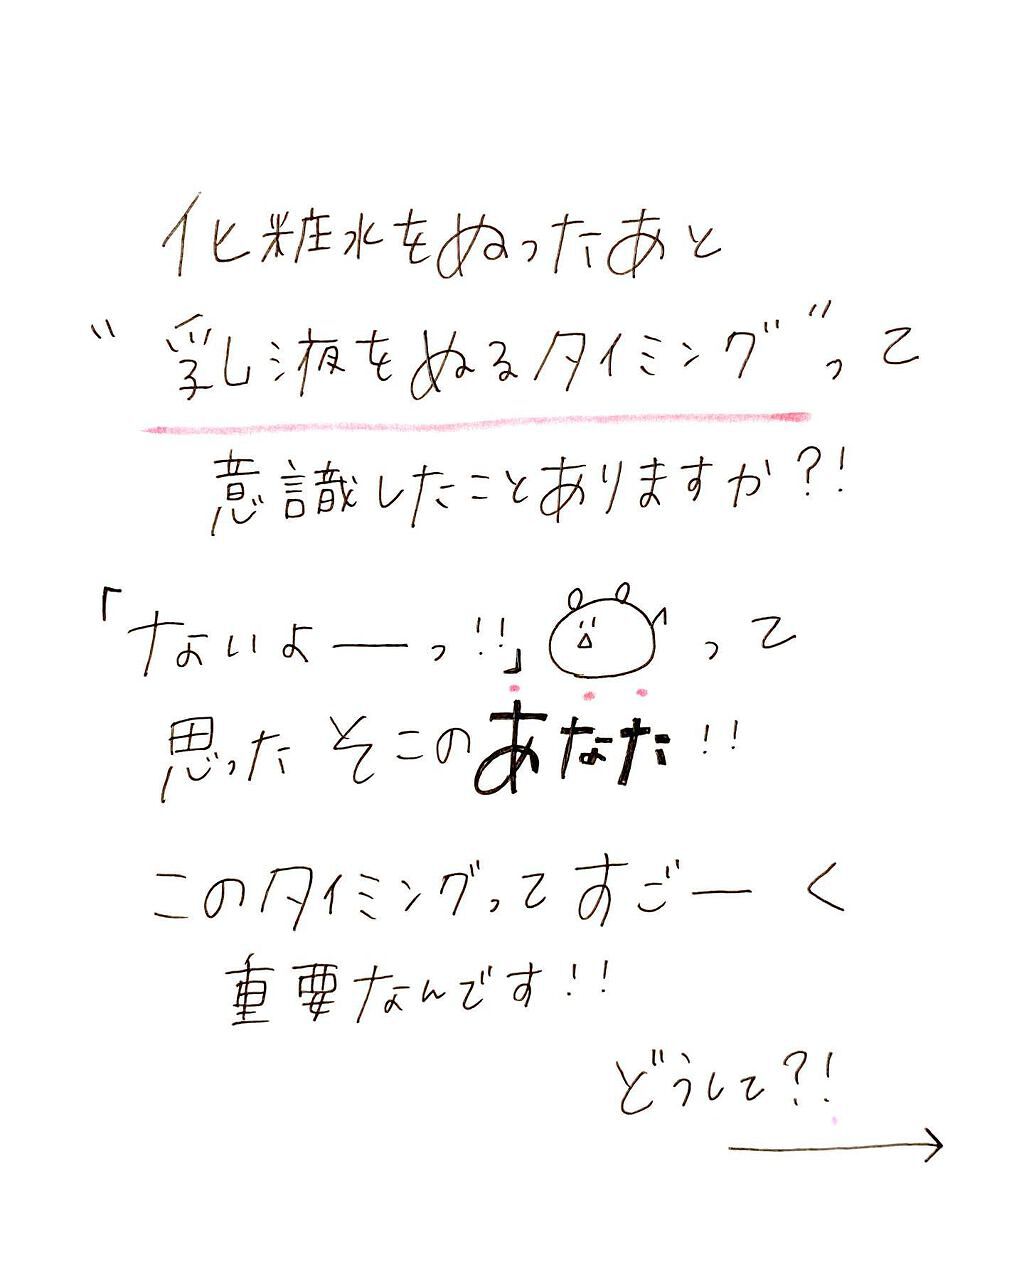 化粧水をぬったあと
"乳液をぬるタイミング"って
意識したことありますか?!
「ないよーっ!!」って
思ったそこのあなた!!
このタイミングってすごーく
重要なんです!!
どうして?!